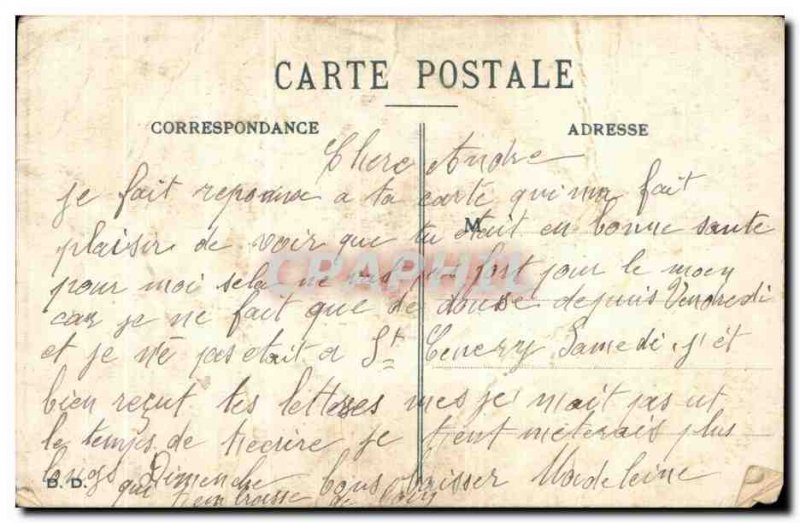 CARTE POSTALE
CORRESPONDANCE
ADRESSE
Chere Andre
je fait reponse a ta carte qui m'a fait
M
plaisir de voir que tu etait en bonne sante
pour moi sela ne vas pas fort pour le moen
car je ne fait que de depuis Vendredi
et je n'é pas etait a St Cenery Samedi j'ét
bien reçut tes lettres mes je n'ait pas ut
le temps de t'ecrire je t'ent meterais plus
longs Dimanche bons baisser Madeleine
qui t'embrasse de loin
B. D.
CPAPHIL